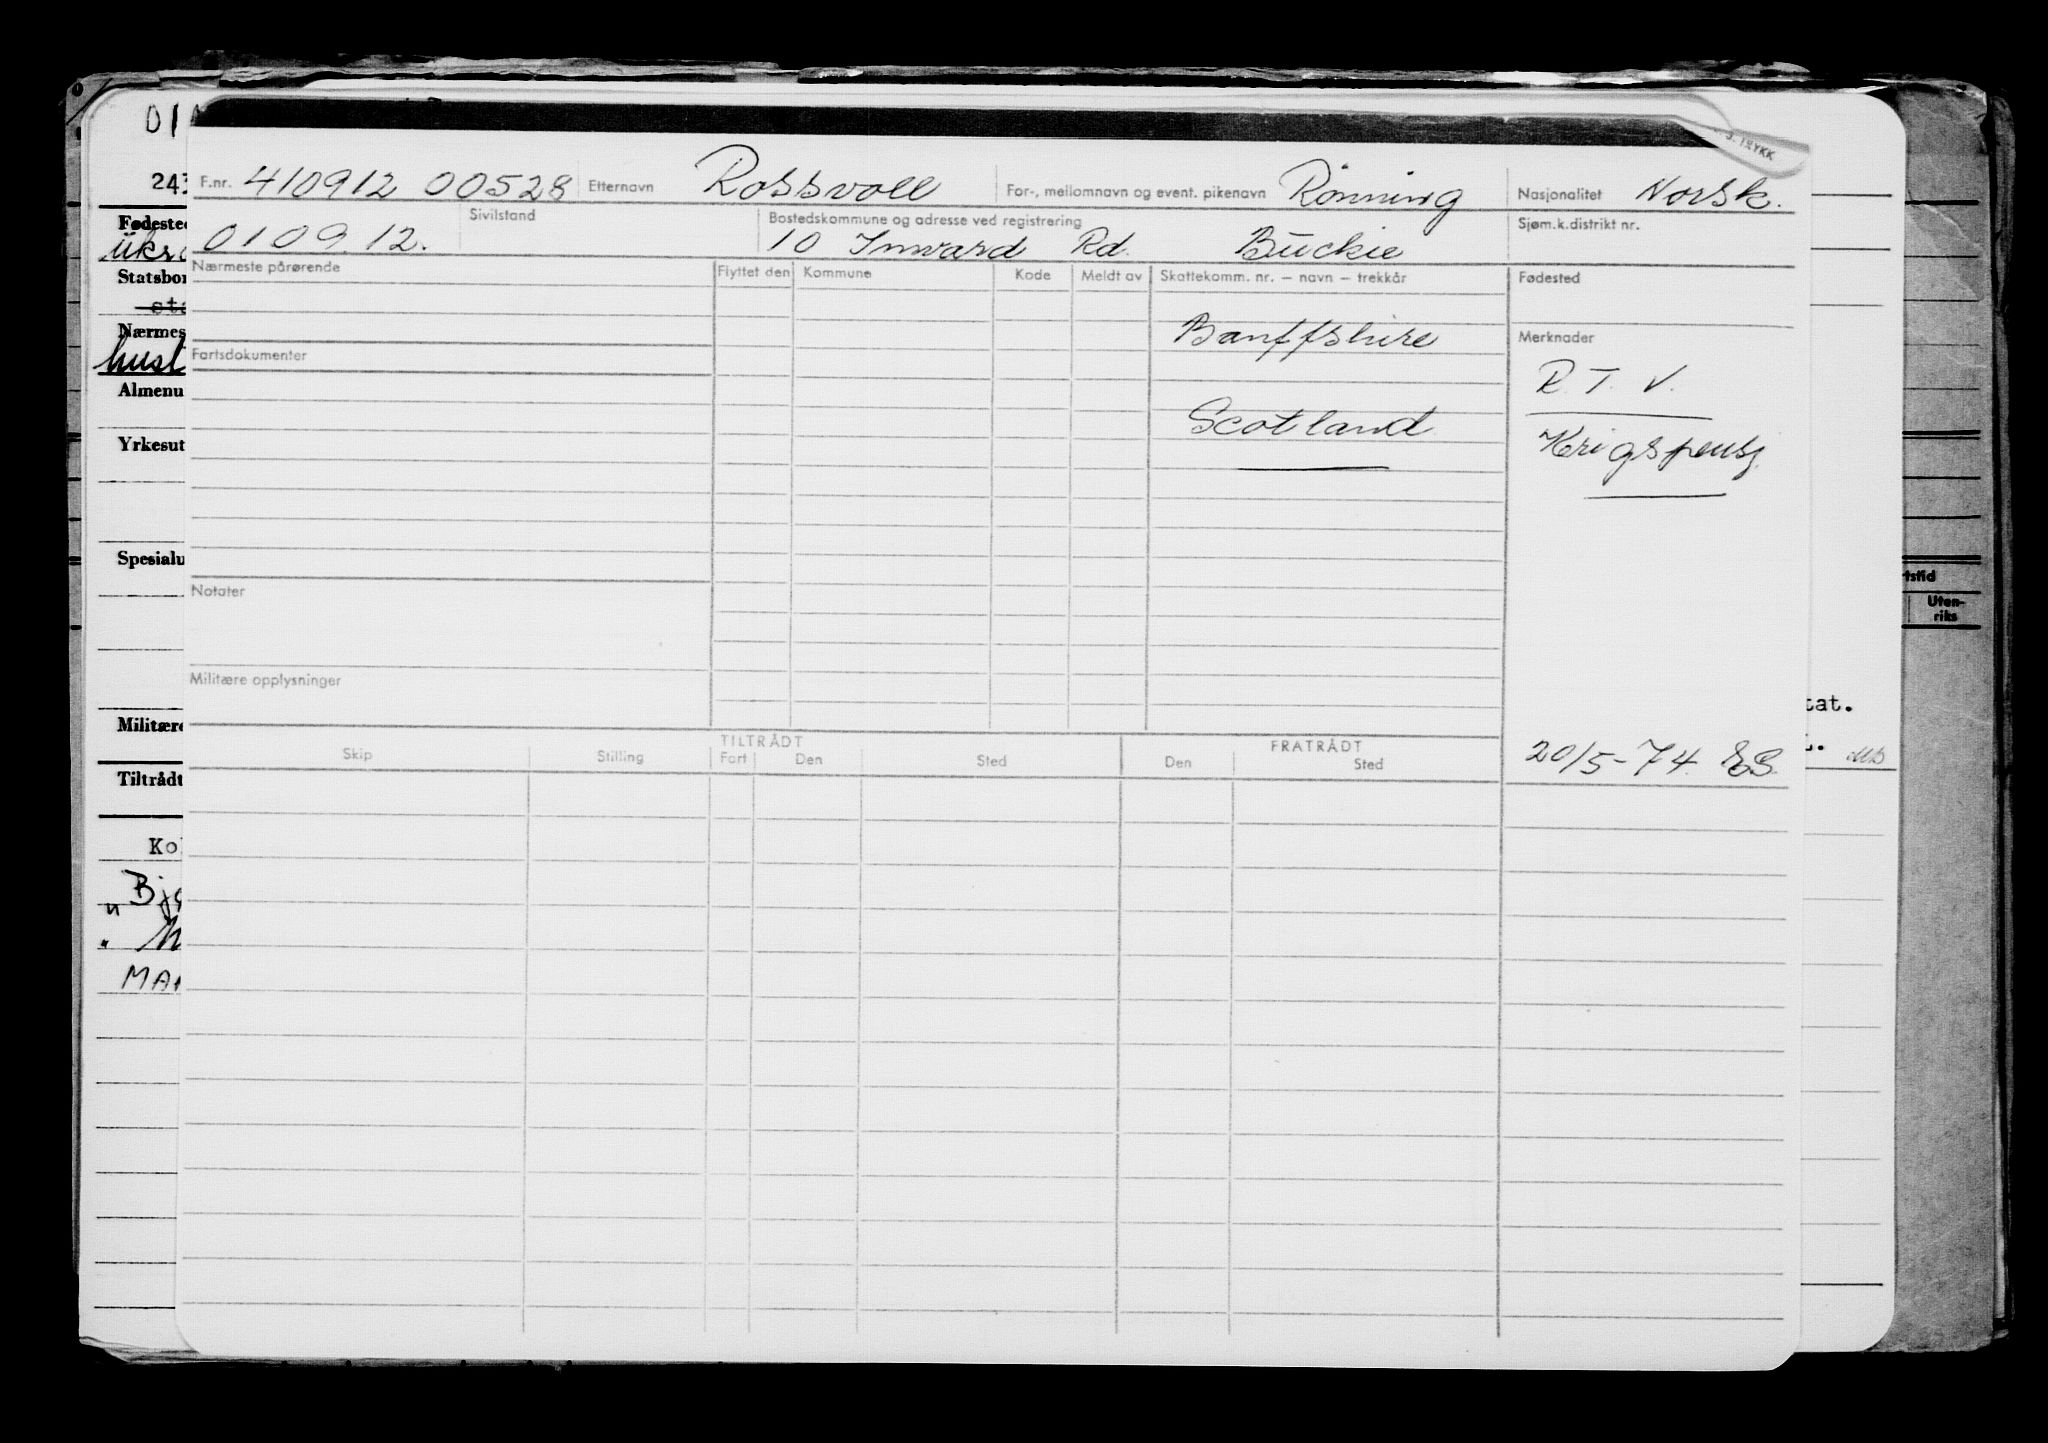 01
S. TRYKK
243
F.nr. 410912 00528 Etternavn Rossvoll For-, mellomnavn og event. pikenavn Rönning Nasjonalitet Norsk.
Fødested
010912. Sivilstand Bostedskommune og adresse ved registrering 10 Inward Rd. Buckie Sjøm.k.distrikt nr.
Statsbor
Nærmeste pårørende Flyttet den Kommune Kode Meldt av Skattekomm. nr. – navn – trekkår Fødested
Nærmes
Banffshire Merknader
husl
Fartsdokumenter
Almenu
R. T. V.
Scotland
Yrkesut
Krigspensj.
Spesialu
rtstid
Uten-
riks
Notater
Militære opplysninger
tat.
Militære
TILTRÅDT FRATRÅDT
Skip Stilling Fart Den Sted Den Sted
20/5-74. ES.
Tiltrådt
Ko
Bjo
"
MAR